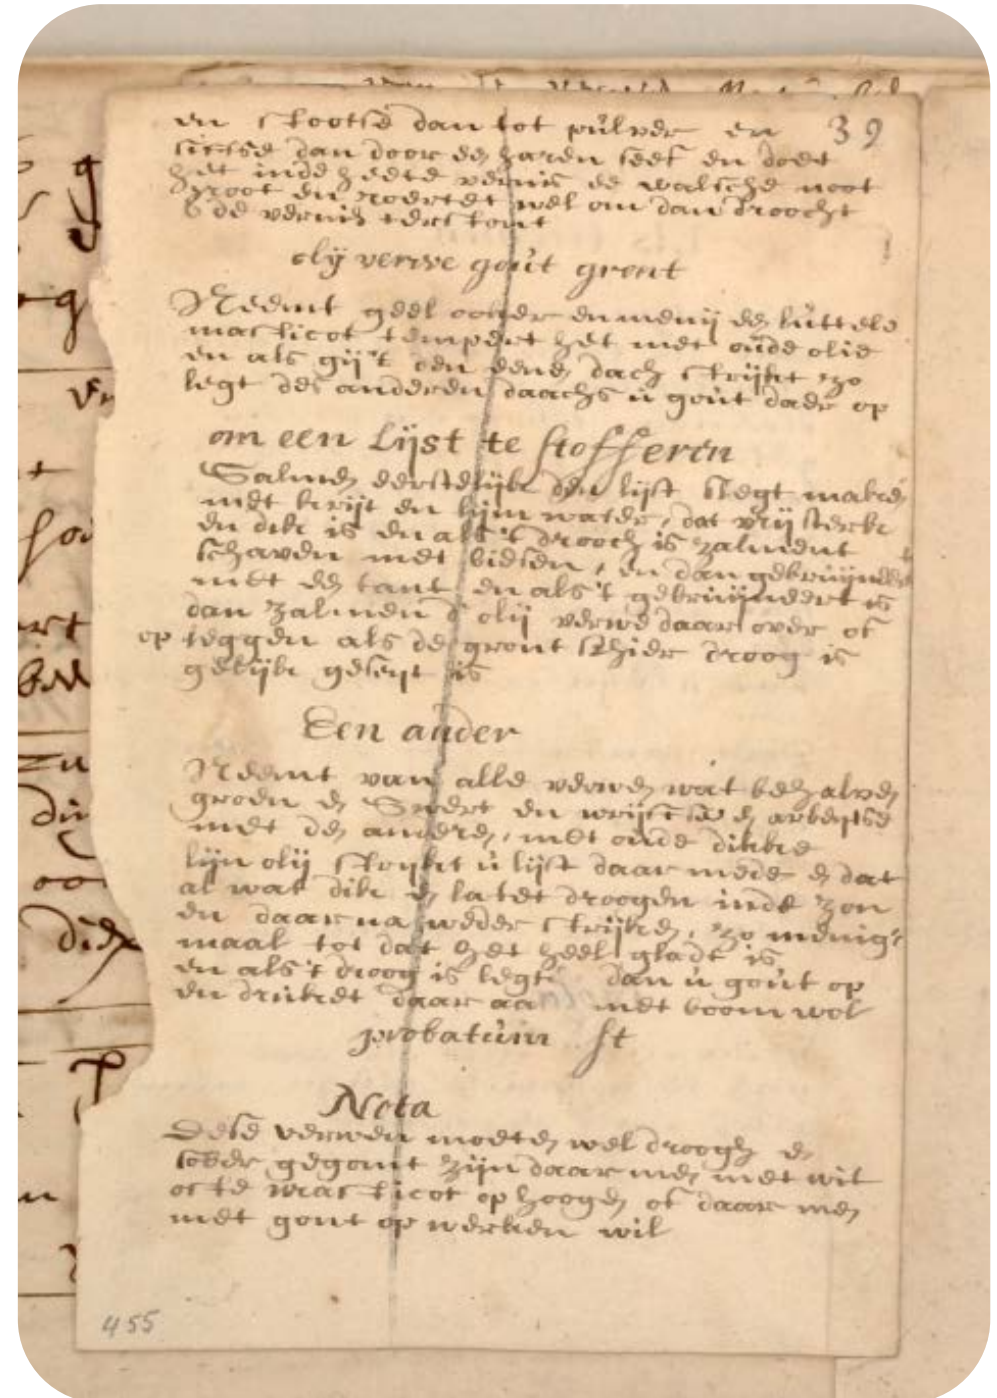 en stootse dan tot pulver en 39
siftse dan door een haren seef en doet
het inde heete vernis ee walsche noot
groot en roertet wel om dan droocht
de vernis terstont
olij verwe gout gront
Neemt geel oocker en menij een luttele
masticot tempert het met oude olie
en als gij't den eenen dach strijkt zo
legt des anderen daachs u gout daer op
om een Lijst te stofferen
Salmen eerstelijke den lijst slegt maken
met krijt en lijm water, dat vrij sterck
en dik is en als't drooch is zalment
schaven met biesen, en dan gebruijneert
met een tant en als't gebruijneert is
dan zalmen d' olij verwe daar over of
op leggen als de gront schier droog is
gelijk geleyt is
Een ander
Neemt van alle verwen wat behalven
groen en Swert en wrijftse d'een
met den anderen, met oude dikke
lijn olij strijket u lijst daar mede en dat
al wat dik en latet droogen inde zon
en daar na weder strijken, zo menig-
maal tot dat het heel gladt is
en als't droog is legt dan u gout op
en druket daar aan met boom wol
probatum st
Nota
Dese verwen moeten wel droogh en
sober gegomt zijn daar men met wit
ofte masticot op hoogen of daar men
met gout op werken wil
455